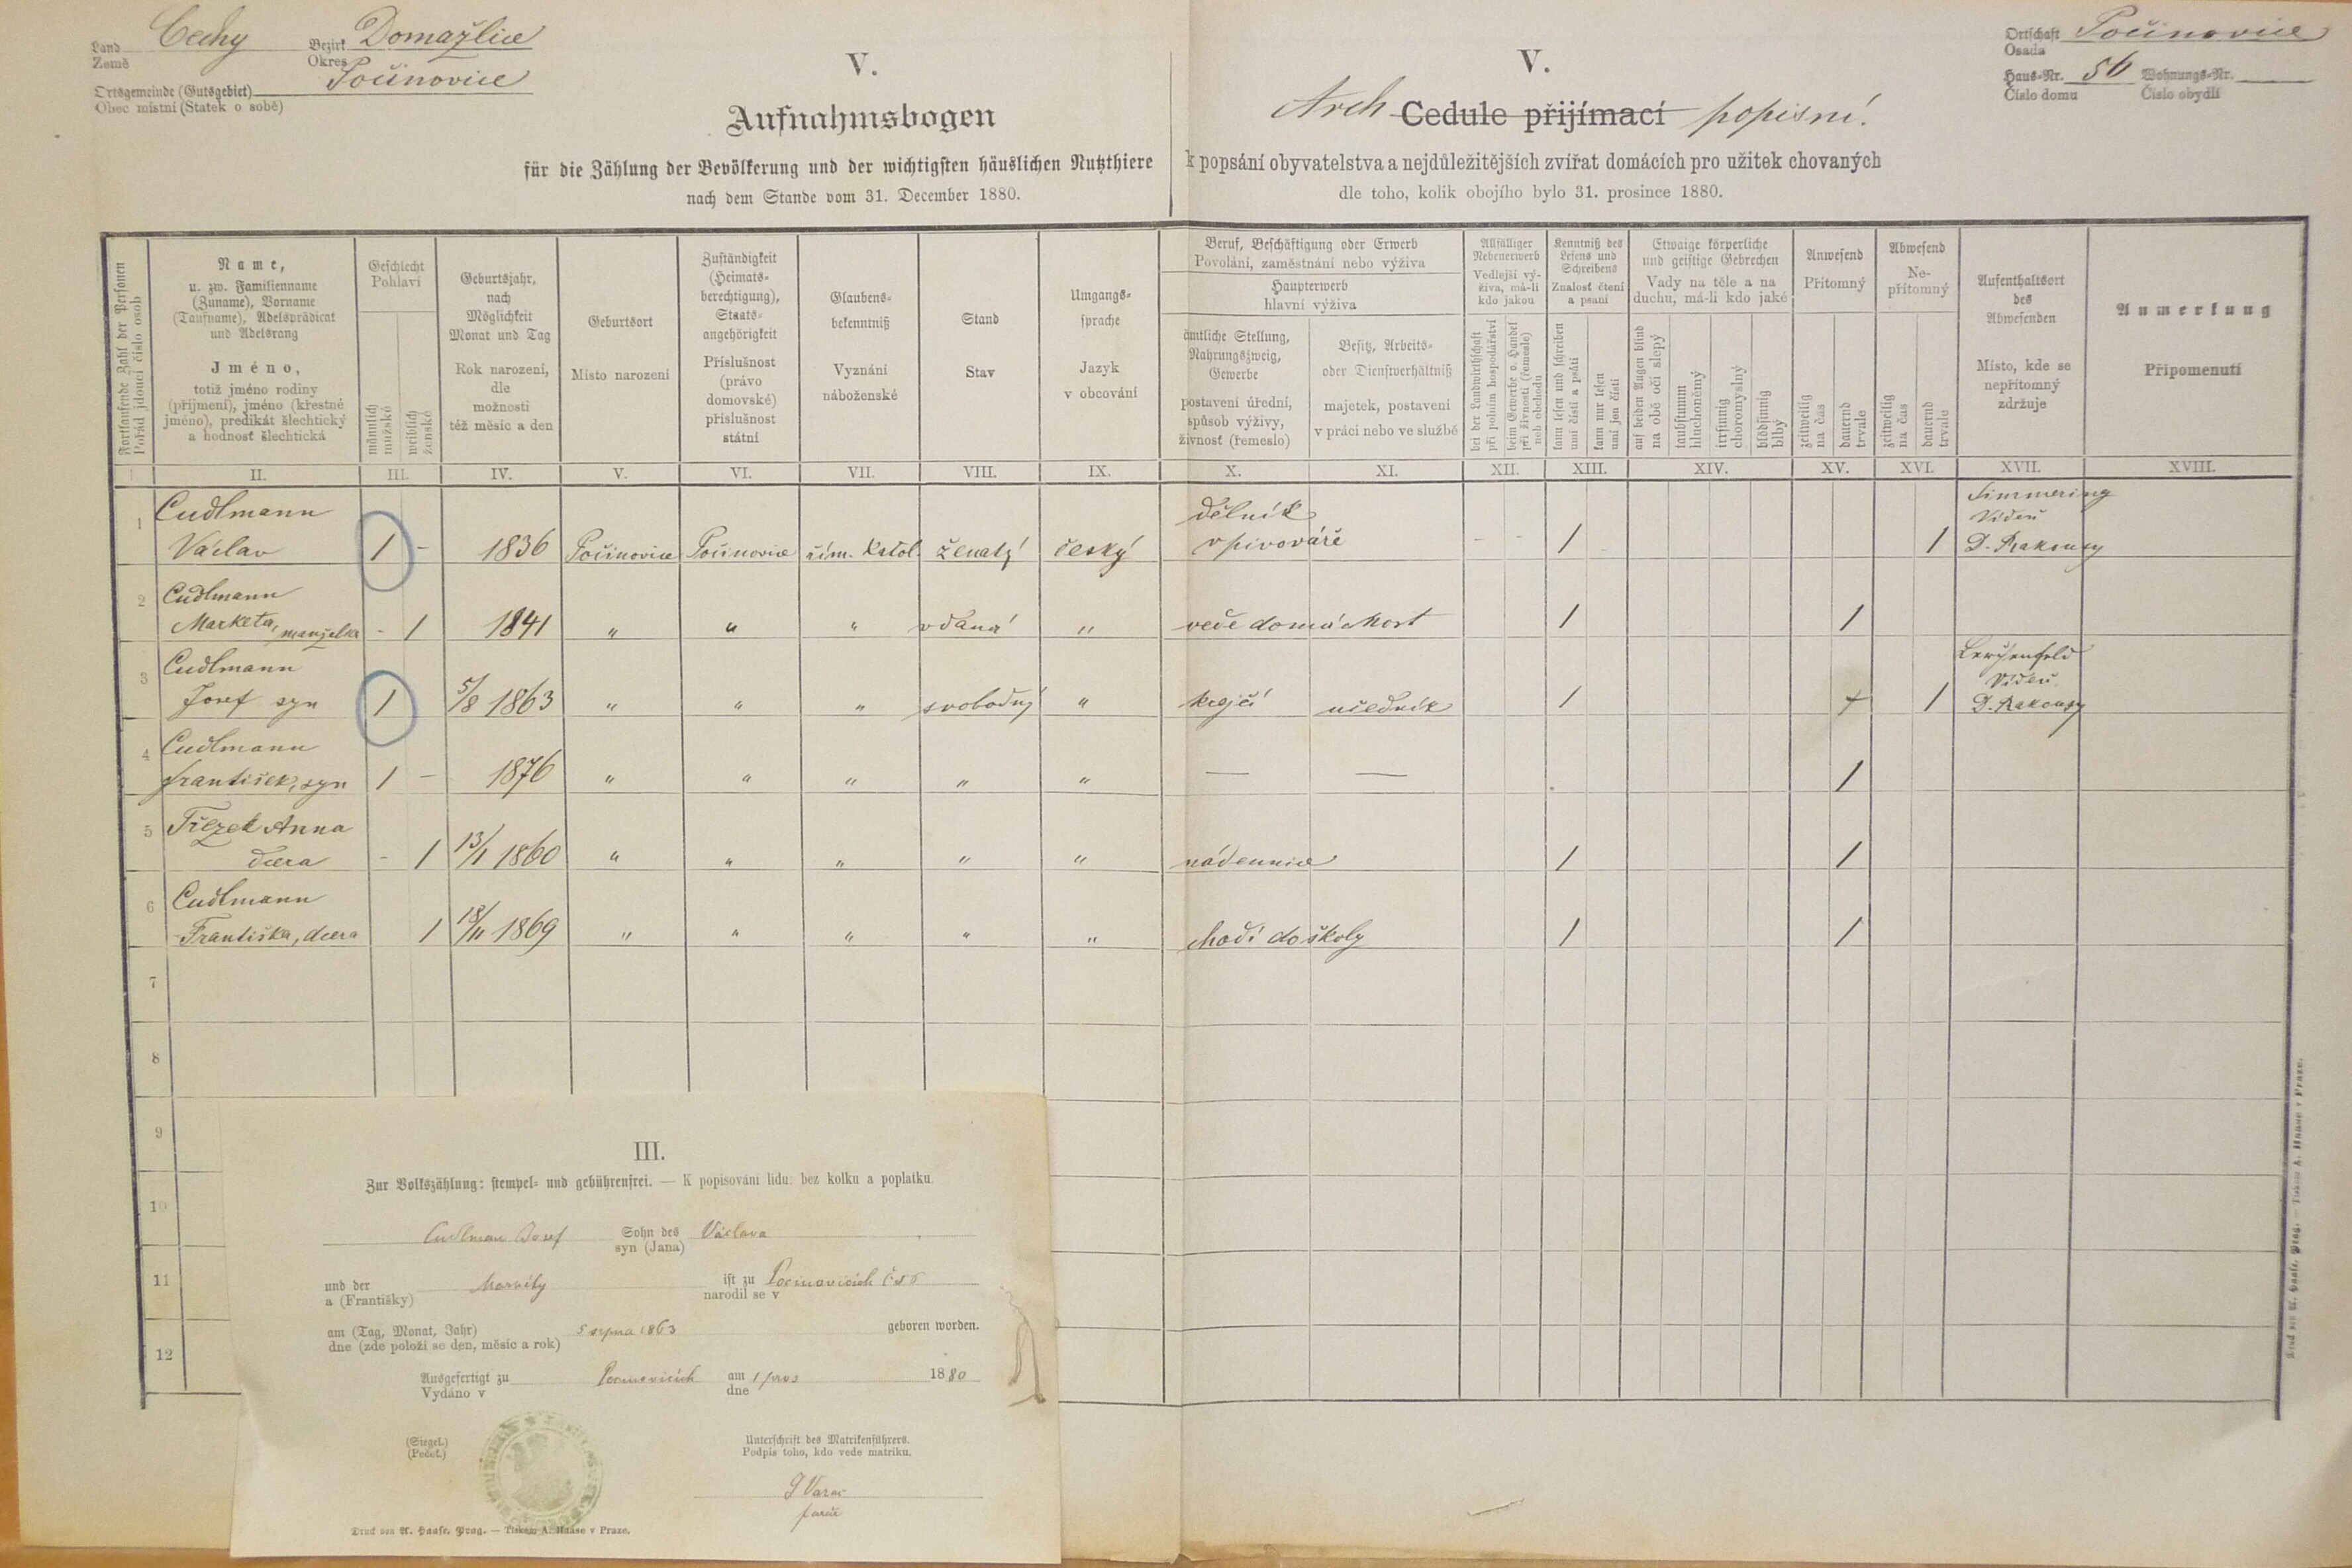 Land Země Čechy
Bezirk Okres Domažlice
Ortsgemeinde (Gutsgebiet) Počinovice
Obec místní (Statek o sobě)
V.
Aufnahmsbogen
für die Zählung der Bevölkerung und der wichtigsten häuslichen Nutzthiere
nach dem Stande vom 31. December 1880.
V.
Arch Cedule přijímací popisní.
k popsání obyvatelstva a nejdůležitějších zvířat domácích pro užitek chovaných
dle toho, kolik obojího bylo 31. prosince 1880.
Ortschaft Osada Počinovice
Haus-Nr. 56 Wohnungs-Nr.
Číslo domu Číslo obydlí
Fortlaufende Zahl der Personen
Pořád jdoucí číslo osob
Name,
u. zw. Familienname
(Zuname), Vorname
(Taufname), Adelsprädicat
und Adelsrang
Jméno,
totiž jméno rodiny
(příjmení), jméno (křestné
jméno), predikát šlechtický
a hodnosť šlechtická
Geschlecht
Pohlaví
männlich
mužské
weiblich
ženské
Geburtsjahr,
nach
Möglichkeit
Monat und Tag
Rok narození,
dle
možnosti
též měsíc a den
Geburtsort
Místo narození
Zuständigkeit
(Heimats-
berechtigung),
Staats-
angehörigkeit
Příslušnost
(právo
domovské)
příslušnost
státní
Glaubens-
bekenntniß
Vyznání
náboženské
Stand
Stav
Umgangs-
sprache
Jazyk
v obcování
Beruf, Beschäftigung oder Erwerb
Povolání, zaměstnání nebo výživa
Haupterwerb
hlavní výživa
ämtliche Stellung,
Nahrungszweig,
Gewerbe
postavení úřední,
spůsob výživy,
živnosť (řemeslo)
Besitz, Arbeits-
oder Dienstverhältniß
majetek, postavení
v práci nebo ve službě
Allfälliger
Nebenerwerb
Vedlejší vý-
živa, má-li
kdo jakou
bei der Landwirthschaft
při polním hospodářství
beim Gewerbe o. Handel
při živnosti (řemesle)
neb obchodu
Kenntniß des
Lesens und
Schreibens
Znalosť čtení
a psaní
kann lesen und schreiben
umí čísti a psáti
kann nur lesen
umí jen čísti
Etwaige körperliche
und geistige Gebrechen
Vady na těle a na
duchu, má-li kdo jaké
auf beiden Augen blind
na obě oči slepý
taubstumm
hluchoněmý
irrsinnig
choromyslný
blödsinnig
blbý
Anwesend
Přítomný
zeitweilig
na čas
dauernd
trvale
Abwesend
Ne-
přítomný
zeitweilig
na čas
dauernd
trvale
Aufenthaltsort
des
Abwesenden
Místo, kde se
nepřítomný
zdržuje
Anmerkung
Připomenutí
I II. III. IV. V. VI. VII. VIII. IX. X. XI. XII. XIII. XIV. XV. XVI. XVII. XVIII.
1 Cudlmann dělník Simmering
Vídeň
Václav 1 - 1836 Počinovice Počinovice řím. katol. ženatý český v pivováře - - 1 1 D. Rakousy
2 Cudlmann
Marketa, manželka - 1 1841 " " " vdaná " vede domácnost 1 1
3 Cudlmann Lerchenfeld
Vídeň
Josef syn 1 5/8 1863 " " " svobodný " krejčí učedník 1 1 D. Rakousy
4 Cudlmann
František, syn 1 - 1876 " " " " " — — 1
5 Třezek Anna
dcera - 1 13/1 1860 " " " " " nádennice 1 1
6 Cudlmann
Františka, dcera 1 18/11 1869 " " " " " chodí do školy 1 1
7
8
9
10
11
12
III.
Zur Volkszählung: stempel- und gebührenfrei. — K popisování lidu: bez kolku a poplatku.
Cudlman Josef Sohn des syn (Jana) Václava
und der a (Františky) Markéty ist zu narodil se v Pocinovicích č 56
am (Tag, Monat, Jahr) 5 srpna 1863 geboren worden.
dne (zde položí se den, měsíc a rok)
Ausgefertigt zu Vydáno v Pocinovicích am dne 1 pros 1880
(Siegel.)
(Pečeť.)
Unterschrift des Matrikenführers.
Podpis toho, kdo vede matriku.
farář
Druck von A. Haase, Prag. — Tiskem A. Haase v Praze.
Druck von A. Haase, Prag. — Tiskem A. Haase v Praze.